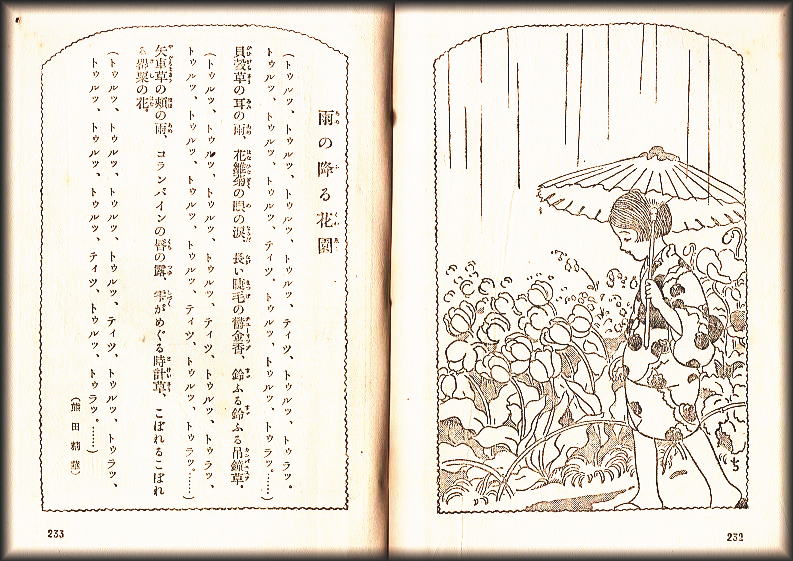 雨の降る花園
（トゥルッ、トゥルッ、トゥルッ、トゥルッ、ティツ、トゥルッ、トゥラッ。
トゥルッ、トゥルッ、トゥルッ、ティツ、トゥルッ、トゥルッ、トゥラッ。……）
貝殻草の耳の雨、花雛菊の眼の涙、長い睫毛の鬱金香、鈴ふる鈴ふる吊鐘草。
（トゥルッ、トゥルッ、トゥルッ、トゥルッ、ティツ、トゥルッ、トゥラッ、
トゥルッ、トゥルッ、トゥルッ、ティツ、トゥルッ、トゥルッ、トゥラッ。……）
矢車草の頬の雨、コランバインの唇の露、雫がめぐる時計草、こぼれるこぼれ
る罌粟の花。
（トゥルッ、トゥルッ、トゥルッ、トゥルッ、ティツ、トゥルッ、トゥラッ、
トゥルッ、トゥルッ、トゥルッ、ティツ、トゥルッ、トゥルッ、トゥラッ。……）
（熊田精華）
233
ち
232